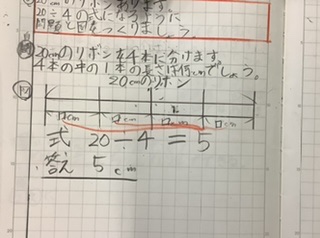 cmのリボンがあります。
20÷4の式になるように
問題と図をつくりましょう。
20cmのリボンを4本に分けます。
4本の中の1本の長さは何cmでしょう。
20cmのリボン
図
□cm □cm □cm □cm
式 20÷4=5
答え 5cm